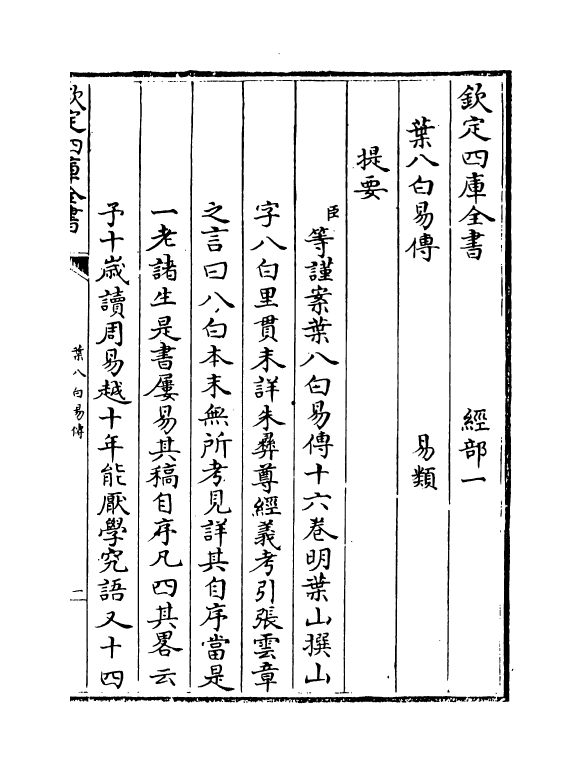 欽定四庫全書　經部一
葉八白易傳　易類
提要
臣等謹案葉八白易傳十六卷明葉山撰山
字八白里貫未詳朱彝尊經義考引張雲章
之言曰八白本末無所考見詳其自序當是
一老諸生是書屢易其稿自序凡四其畧云
予十歳讀周易越十年能厭學究語又十四
欽定四庫全書
葉八白易傳
二